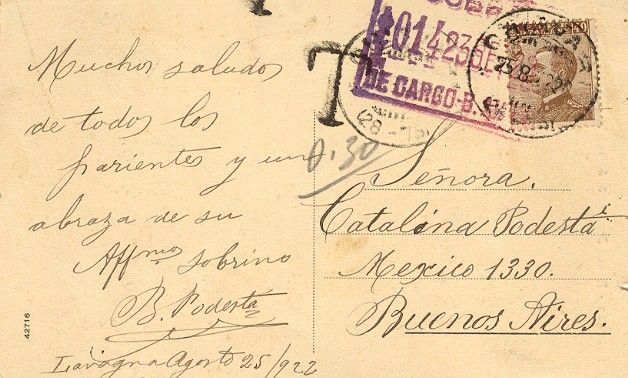 Muchos saludos
de todos los
parientes y un
abraza de su
Affmo sobrino
B. Podestá
Lavagna Agosto 25/922
42716
T
0.30
DE CARGO-B.
Señora.
Catalina Podestá
Mexico 1330.
Buenos Aires.